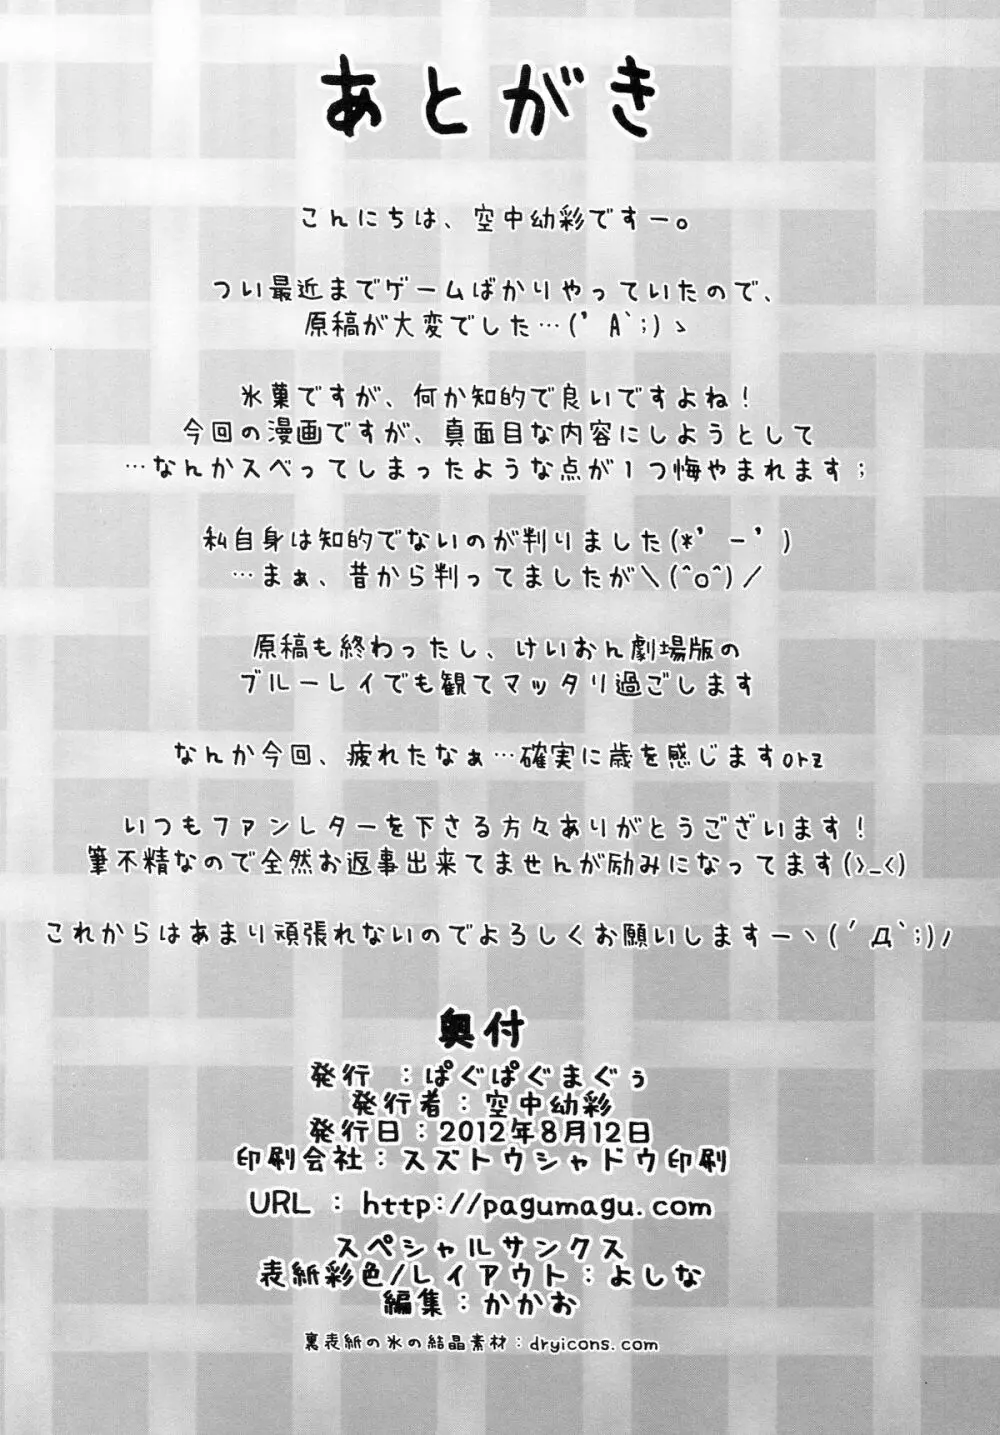 あとがき
こんにちは、空中幼彩ですー。
つい最近までゲームばかりやっていたので、
原稿が大変でした…(’A`;)ゝ
氷菓ですが、何か知的で良いですよね！
今回の漫画ですが、真面目な内容にしようとして
…なんかスベってしまったような点が１つ悔やまれます；
私自身は知的でないのが判りました(*’－’)
…まぁ、昔から判ってましたが＼(^o^)／
原稿も終わったし、けいおん劇場版の
ブルーレイでも観てマッタリ過ごします
なんか今回、疲れたなぁ…確実に歳を感じますorz
いつもファンレターを下さる方々ありがとうございます！
筆不精なので全然お返事出来てませんが励みになってます(>_<)
これからはあまり頑張れないのでよろしくお願いしますーヽ(´Д`;)ﾉ
奥付
発行　：ぱぐぱぐまぐぅ
発行者：空中幼彩
発行日：2012年8月12日
印刷会社：スズトウシャドウ印刷
URL : http://pagumagu.com
スペシャルサンクス
表紙彩色/レイアウト：よしな
編集：かかお
裏表紙の氷の結晶素材：dryicons.com